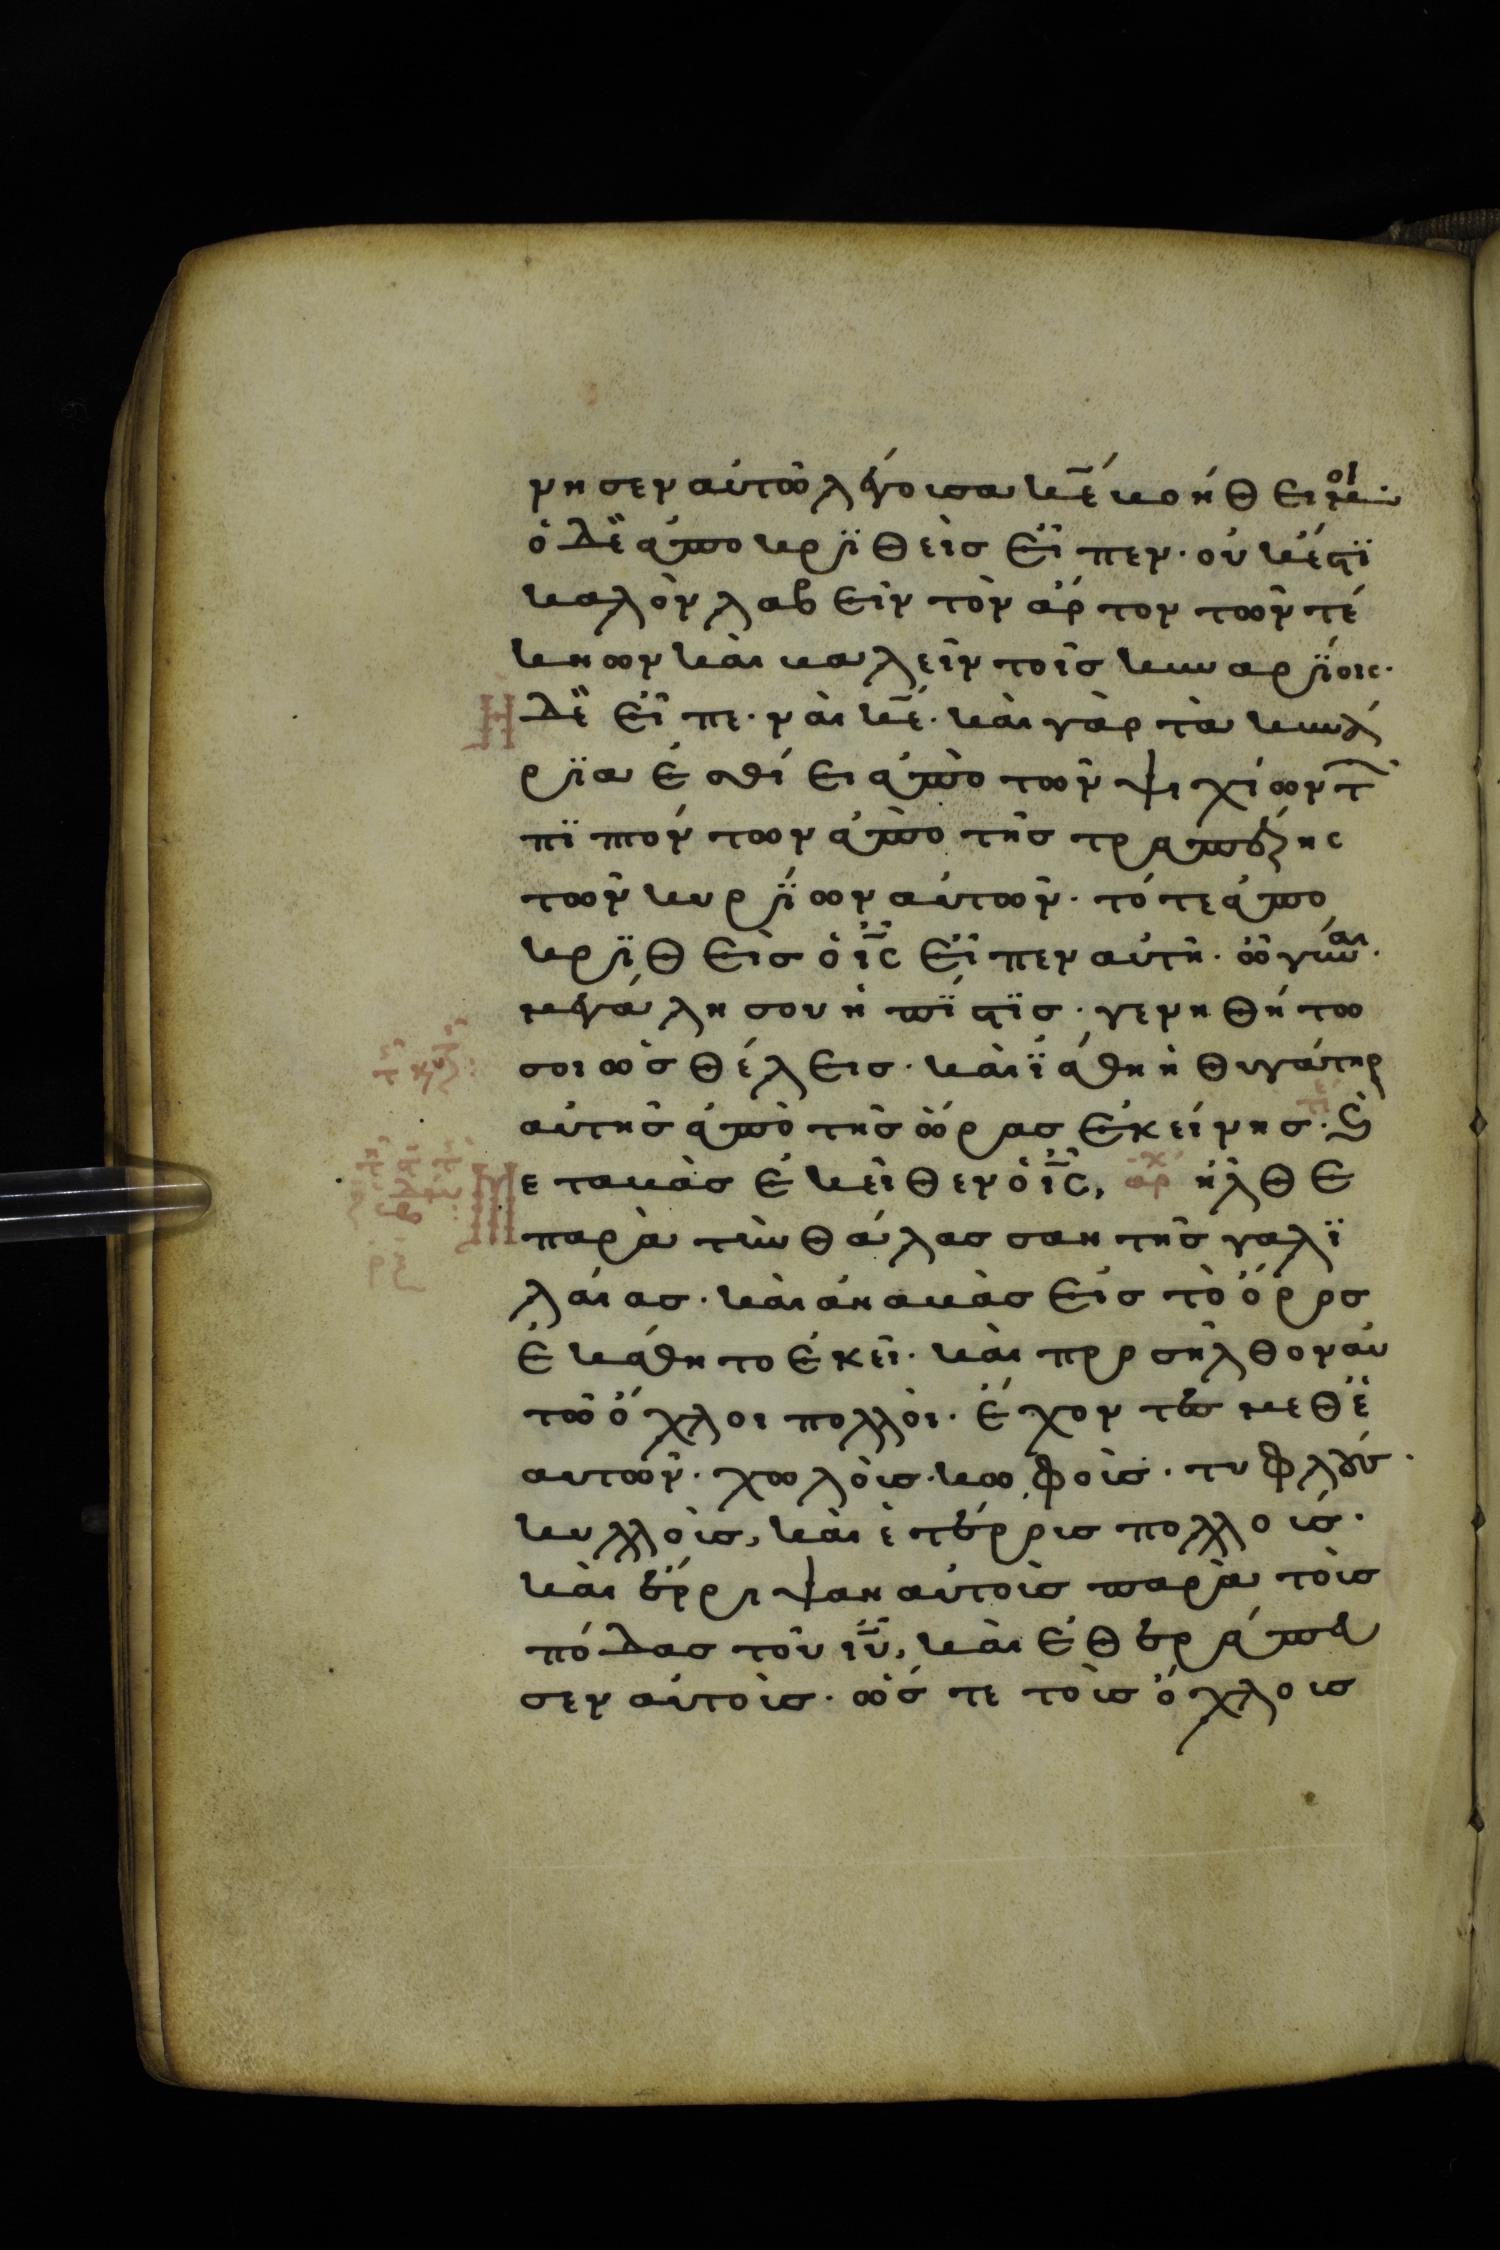 νησεν αὐτῶ λέγουσα κ̅ε βοήθει μοι·
ὁ δὲ ἀποκρϊθεὶσ εἶπεν· οὐκ ἔστϊ
καλὸν λαβεῖν τὸν ἄρτον τῶν τέ
κνων καὶ βαλεῖν τοῖσ κυναρΐοις·
Η δὲ εἶπε· ναὶ κ̅ε· καὶ γὰρ τὰ κυνά
ρϊα ἐσθίει ἀπὸ τῶν ψιχίων τῶν
πϊπτόντων ἀπὸ τῆσ τραπέζης
τῶν κυρΐων αὐτῶν· τότε ἀπο
κρϊθεὶσ ὁ ι̅ς εἶπεν αὐτῆ· ὦ γύναι·
μεγάλη σου ἡ πΐστϊσ· γενηθήτω
σοι ὡσ θέλεισ· καὶ ϊάθη ἡ θυγάτηρ
αὐτῆσ ἀπὸ τῆσ ὥρασ ἐκείνησ· Ϛ
Μεταβὰσ ἐκεῖθεν ὁ ι̅ς, ἀρχ ἦλθε
παρὰ τὴν θάλασσαν τῆσ γαλϊ
λαίασ· καὶ ἀναβὰσ εἰσ τὸ ὄροσ
ἐκάθητο ἐκεῖ· καὶ προσῆλθον αὐ
τῶ ὄχλοι πολλοὶ· ἔχοντεσ μεθ ἑ
αυτῶν· χωλοὺσ· κωφοὺσ· τυφλούσ·
κυλλοὺσ, καὶ ἑτέρουσ πολλούσ·
καὶ ἔρριψαν αὐτοὺσ παρὰ τοὺσ
πόδασ τοῦ ι̅υ, καὶ ἐθεράπευ
σεν αὐτοὺσ· ὥστε τοὺσ ὄχλουσ